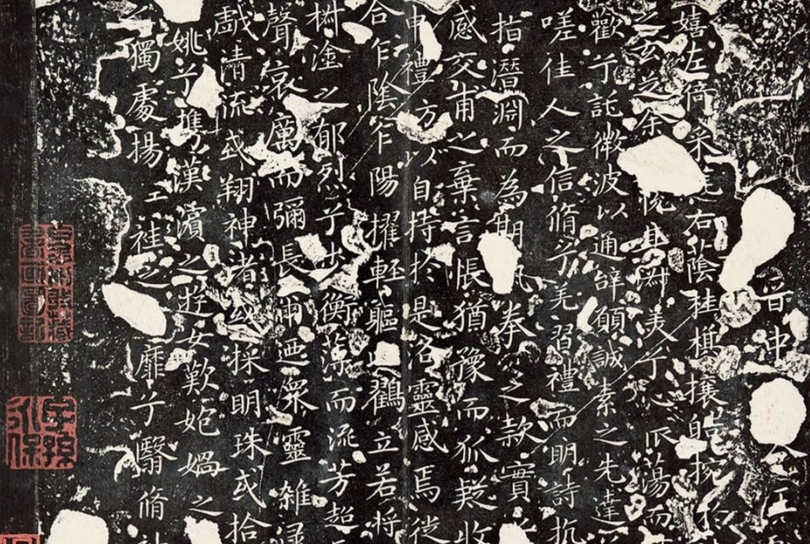 晉中令
嬉左倚采旄右蔭桂旗攘皓捥於
之玄芝余悅其淑美兮心振蕩而
歡兮託微波以通辭願誠素之先達
嗟佳人之信脩兮羌習禮而明詩抗
指潛淵而為期執拳之款實
感交甫之棄言悵猶豫而狐疑收
申禮方以自持於是洛靈感焉徙
合乍陰乍陽擢輕軀以鶴立若將
椒塗之郁烈兮步衡薄而流芳超
聲哀厲而彌長爾迺衆靈雜
戲清流或翔神渚或採明珠或拾
姚兮攜漢濱之遊女歎匏媧之
之獨處揚輕袿之靡兮翳脩
子孫永保